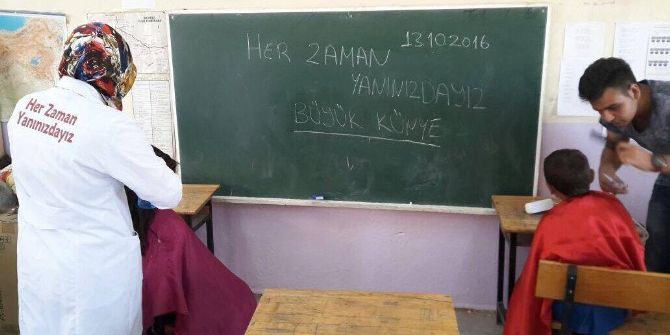 Her Zaman
Yanınızdayız
HER ZAMAN
13.10.2016
YANINIZDAYIZ
BÜYÜK KÜNYE